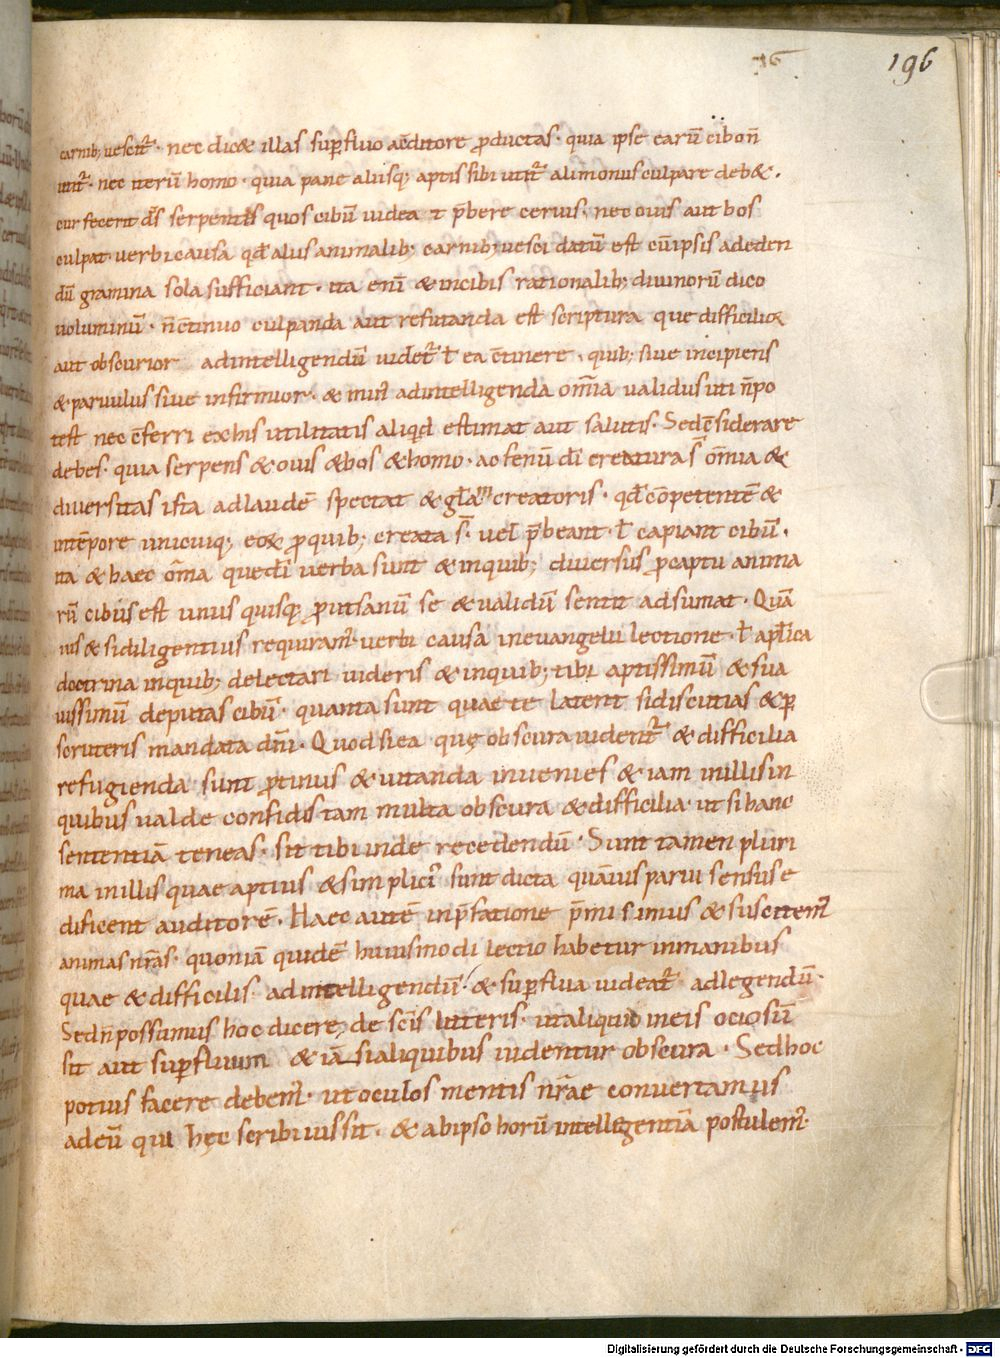 16
196
carnib; uescit᷑ · nec dic& illas suꝑfluo a c̄ditore ꝓductas · quia ipse earū cibo n̄
utit᷑ · nec iterū homo · quia pane aliisq; aptis sibi utit᷑ alimoniis culpare deb& ·
cur fecerit d̄s serpentes quos cibū uidea t p̄bere ceruis · nec ouis aut bos
culpat · uerbi causa qđ aliis animalib; carnib; uesci datū est cū ipsis ad eden
dū gramina sola sufficiant · ita eni̅ & in cibis rationalib; diuinorū dico
uoluminū · n̄ c̄tinuo culpanda aut refutanda est scriptura que difficilior
aut obscurior ad intelligendū uidet᷑ ł ea c̄tinere · quib; siue incipiens
& paruulus siue infirmior · & min᷒ ad intelligenda om̄ia ualidus uti n̄ po
test nec c̄ferri ex his utilitatis aliqđ estimat aut salutis · Sed c̄siderare
debes · quia serpens & ouis & bos & homo · ac fenū dī creatura s̄ om̄ia &
diuersitas ista ad laudē spectat & gl̄am creatoris · qđ cōpetentē &
in tēpore unicuiq; eo& ꝓ quib; creata s̄ · uel p̄beant · ł capiant cibū ·
ita & haec om̄a que dī uerba sunt & in quib; diuersus ꝓ captu anima
rū cibus est unus quisq; ꝓut sanū se & ualidū sentit adsumat · Quā
uis & si diligentius requiram᷒ · uerbi causa in euangelii lectione · ł apl̄ica
doctrina in quib; delectari uideris & in quib; tibi aptissimū & sua
uissimū deputas cibū · quanta sunt quae te latent si discutias & ꝑ
scruteris mandata dn̄i · Quod si ea quę obscura uident᷑ & difficilia
refugienda sunt ꝓtinus & uitanda inuenies & iam in illis in
quibus ualde confidis tam multa obscura & difficilia · ut si hanc
sententiā teneas · sit tibi inde recedendū · Sunt tamen pluri
ma in illis quae aptius & simplici᷒ sunt dicta quāuis parui sensus e
dificent auditorē · Haec autē in p̄fatione p̄misimus & suscitem᷒
animas nr̄as · quoniā quidē huiusmodi lectio habetur in manibus
quae & difficilis ad intelligendū · & suꝑflua uideat᷑ ad legendū ·
Sed n̄ possumus hoc dicere, de sc̄is litteris · ut aliquid in eis ociosū
sit aut suꝑfluum & iā si aliquibus uidentur obscura · Sed hoc
potius facere debem᷒ · ut oculos mentis nr̄ae conuertamus
ad eū qui hęc scribi iussit · & ab ipso horū intelligentiā postulem᷒ ·
Digitalisierung gefördert durch die Deutsche Forschungsgemeinschaft - DFG